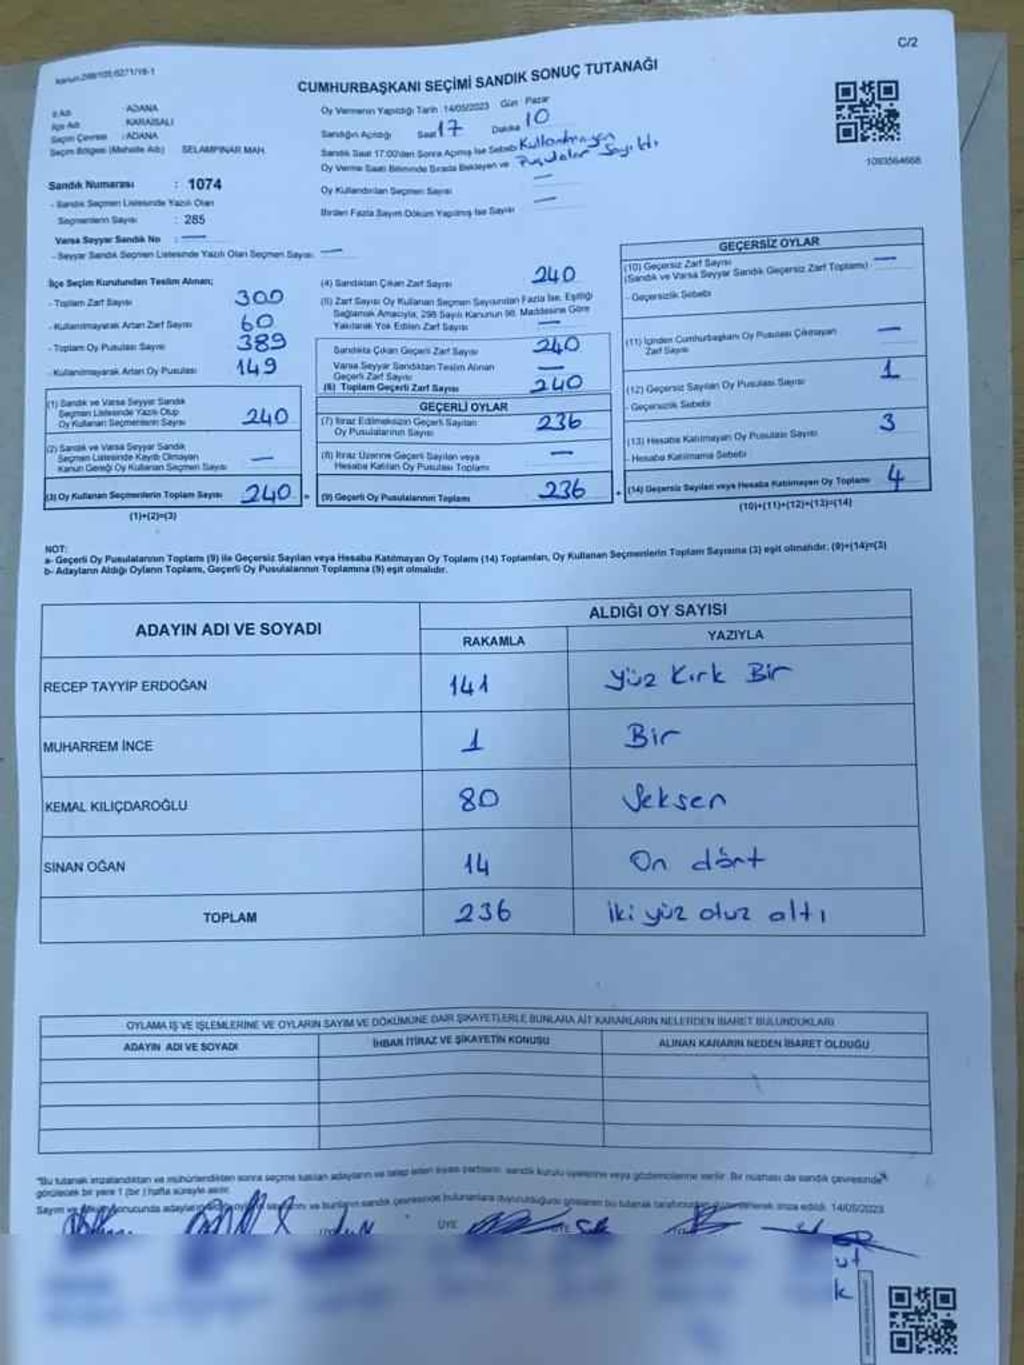 C/2
kanun:298/105;6271/19-1
CUMHURBAŞKANI SEÇİMİ SANDIK SONUÇ TUTANAĞI
İl Adı : ADANA
İlçe Adı : KARAİSALI
Seçim Çevresi : ADANA
Seçim Bölgesi (Mahalle Adı) SELAMPINAR MAH.
Oy Vermenin Yapıldığı Tarih 14/05/2023 Gün Pazar
Sandığın Açıldığı Saat 17 Dakika 10
Sandık Saat 17:00'den Sonra Açılmış İse Sebebi Kullanılmayan
Oy Verme Saati Bitiminde Sırada Bekleyen ve Pusulalar Sayıldı
Oy Kullandırılan Seçmen Sayısı —
Birden Fazla Sayım Döküm Yapılmış İse Sayısı —
1093564668
Sandık Numarası : 1074
- Sandık Seçmen Listesinde Yazılı Olan
Seçmenlerin Sayısı : 285
Varsa Seyyar Sandık No : —
- Seyyar Sandık Seçmen Listesinde Yazılı Olan Seçmen Sayısı: —
İlçe Seçim Kurulundan Teslim Alınan;
- Toplam Zarf Sayısı 300
- Kullanılmayarak Artan Zarf Sayısı 60
- Toplam Oy Pusulası Sayısı 389
- Kullanılmayarak Artan Oy Pusulası 149
(1) Sandık ve Varsa Seyyar Sandık
Seçmen Listesinde Yazılı Olup
Oy Kullanan Seçmenlerin Sayısı 240
(2) Sandık ve Varsa Seyyar Sandık
Seçmen Listesinde Kayıtlı Olmayan
Kanun Gereği Oy Kullanan Seçmen Sayısı —
(3) Oy Kullanan Seçmenlerin Toplam Sayısı 240 =
(1)+(2)=(3)
(4) Sandıktan Çıkan Zarf Sayısı 240
(5) Zarf Sayısı Oy Kullanan Seçmen Sayısından Fazla İse, Eşitliği
Sağlamak Amacıyla, 298 Sayılı Kanunun 98. Maddesine Göre
Yakılarak Yok Edilen Zarf Sayısı —
Sandıkta Çıkan Geçerli Zarf Sayısı 240
Varsa Seyyar Sandıktan Teslim Alınan
Geçerli Zarf Sayısı —
(6) Toplam Geçerli Zarf Sayısı 240
GEÇERLİ OYLAR
(7) İtiraz Edilmeksizin Geçerli Sayılan
Oy Pusulalarının Sayısı 236
(8) İtiraz Üzerine Geçerli Sayılan veya
Hesaba Katılan Oy Pusulası Toplamı —
(9) Geçerli Oy Pusulalarının Toplamı 236 +
GEÇERSİZ OYLAR
(10) Geçersiz Zarf Sayısı
(Sandık ve Varsa Seyyar Sandık Geçersiz Zarf Toplamı) —
- Geçersizlik Sebebi
(11) İçinden Cumhurbaşkanı Oy Pusulası Çıkmayan
Zarf Sayısı —
(12) Geçersiz Sayılan Oy Pusulası Sayısı 1
- Geçersizlik Sebebi
(13) Hesaba Katılmayan Oy Pusulası Sayısı 3
- Hesaba Katılmama Sebebi
(14) Geçersiz Sayılan veya Hesaba Katılmayan Oy Toplamı 4
(10)+(11)+(12)+(13)=(14)
NOT:
a- Geçerli Oy Pusulalarının Toplamı (9) ile Geçersiz Sayılan veya Hesaba Katılmayan Oy Toplamı (14) Toplamları, Oy Kullanan Seçmenlerin Toplam Sayısına (3) eşit olmalıdır. (9)+(14)=(3)
b- Adayların Aldığı Oyların Toplamı, Geçerli Oy Pusulalarının Toplamına (9) eşit olmalıdır.
ADAYIN ADI VE SOYADI ALDIĞI OY SAYISI
RAKAMLA YAZIYLA
RECEP TAYYİP ERDOĞAN 141 Yüz Kırk Bir
MUHARREM İNCE 1 Bir
KEMAL KILIÇDAROĞLU 80 Seksen
SİNAN OĞAN 14 On dört
TOPLAM 236 iki yüz otuz altı
OYLAMA İŞ VE İŞLEMLERİNE VE OYLARIN SAYIM VE DÖKÜMÜNE DAİR ŞİKAYETLERLE BUNLARA AİT KARARLARIN NELERDEN İBARET BULUNDUKLARI
ADAYIN ADI VE SOYADI İHBAR İTİRAZ VE ŞİKAYETİN KONUSU ALINAN KARARIN NEDEN İBARET OLDUĞU
"Bu tutanak imzalandıktan ve mühürlendikten sonra seçime katılan adayların ve talep eden siyasi partilerin sandık kurulu üyelerine veya gözlemcilerine verilir. Bir nüshası da sandık çevresinde
görülecek bir yere 1 (bir) hafta süreyle asılır.
Sayım ve sonucunda adayların ve bunların sandık çevresinde bulunanlara duyurulduğunu gösteren bu tutanak imza edildi. 14/05/2023
ÜYE ÜYE
ut
k